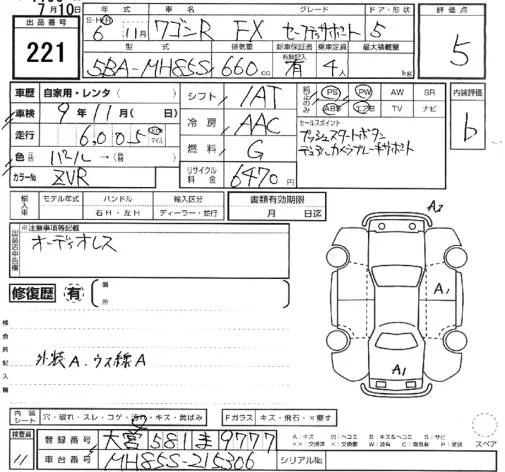 7月10日
出品番号
221
年式 車名 グレード ドア・形状
S・H・R 6年 11月 ワゴンR FX セーフティサポート 5
型式 排気量 新車保証書 有無記入 乗車定員 最大積載量
5BA-MH85S 660cc 有 4人 kg
評価点
5
車歴 自家用・レンタ( )
車検 9年 11月( 日)
走行 6,005 km マイル
色 パール → (替)
カラーNo ZVR
シフト IAT
冷房 AAC
燃料 G
リサイクル料金 6470円
純正のみ PS PW AW SR
ABS エアB TV ナビ
セールスポイント
プッシュスタートボタン
デュアルカメラブレーキサポート
内装評価
b
輸入車 モデル年式 ハンドル 輸入区分
年 右H・左H ディーラー・並行
書類有効期限
月 日迄
※注意事項等記載
出品店申告欄
オーディオレス
修復歴 有 箇所
検査員記入欄
外装A、ウス線A
A2
A1
A1
内装シート 穴・破れ・スレ・コゲ・汚れ・キズ・黄ばみ Fガラス キズ・飛石・×要す
検査員
11
登録番号 大宮 581 ま 9777
車台番号 MH85S-215306 シリアルNo.
A:キズ U:ヘコミ B:キズ&ヘコミ S:サビ
××:交換済 X:交換要 W:波有 C:腐食有 P:塗装
スペア